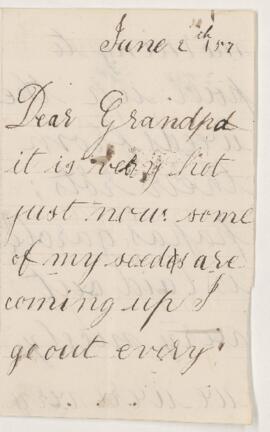 June 2th 187
Dear Grandpa
it is very hot
just now some
of my seeds are
coming up I
go out every